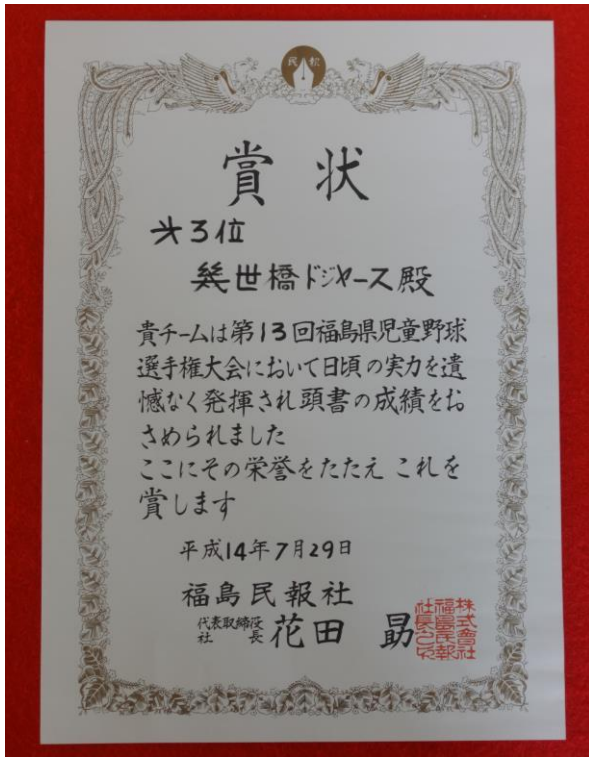 民報
賞状
㐧3位
幾世橋ドジャース殿
貴チームは第13回福島県児童野球
選手権大会において日頃の実力を遺
憾なく発揮され頭書の成績をお
さめられました
ここにその栄誉をたたえ これを
賞します
平成14年7月29日
福島民報社
代表取締役
社長 花田 勗
株式會社
福島民報
社長之印